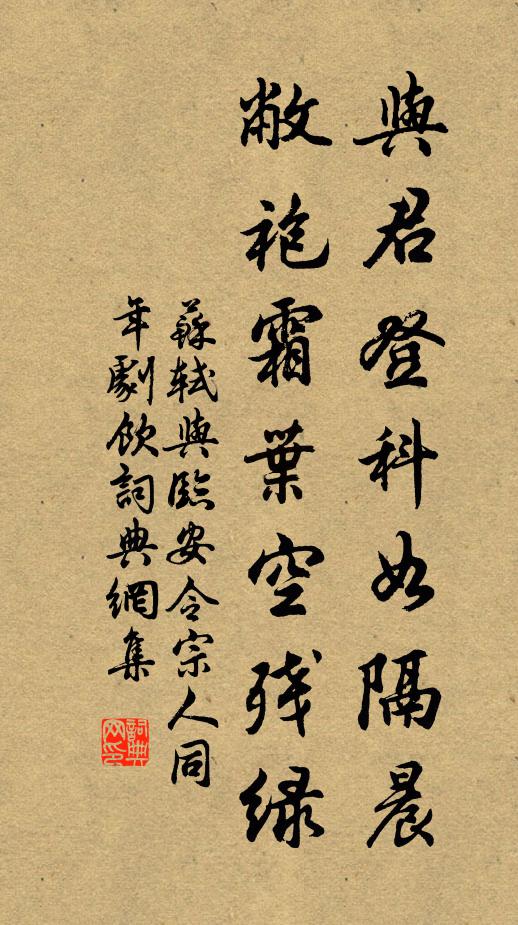 與君登科如隔晨
敝袍霜葉空殘綠
蘇軾與臨安令宗人同
年劇飲詞典網集
詞典
网印